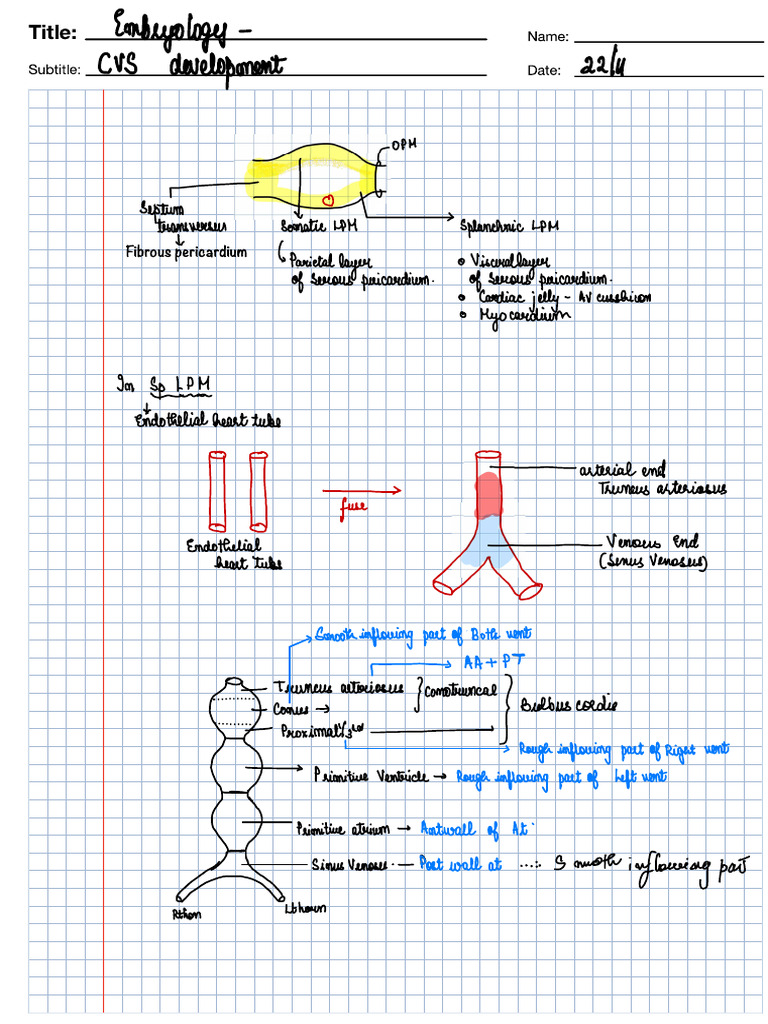 Title: Embryology -
Name:
Subtitle: CVS development
Date: 22/11
OPM
Septum transversus
Fibrous pericardium
Somatic LPM
Parietal layer
of Serous pericardium.
Splanchnic LPM
• Visceral layer
of Serous pericardium.
• Cardiac jelly - AV cushion
• Myocardium
In Sp LPM
Endothelial heart tube
fuse
Endothelial
heart tube
arterial end
Truncus arteriosus
Venous End
(Sinus Venosus)
Smooth inflowing part of Both vent
AA + PT
Truncus arteriosus } Conotruncal
Conus →
Bulbus cordis
Proximal 1/3rd
Rough inflowing part of Right vent
Primitive Ventricle → Rough inflowing part of Left vent
Primitive atrium → Ant wall of At
Sinus Venosus - Post wall at ....: Smooth inflowing part
Rt horn
Lt horn